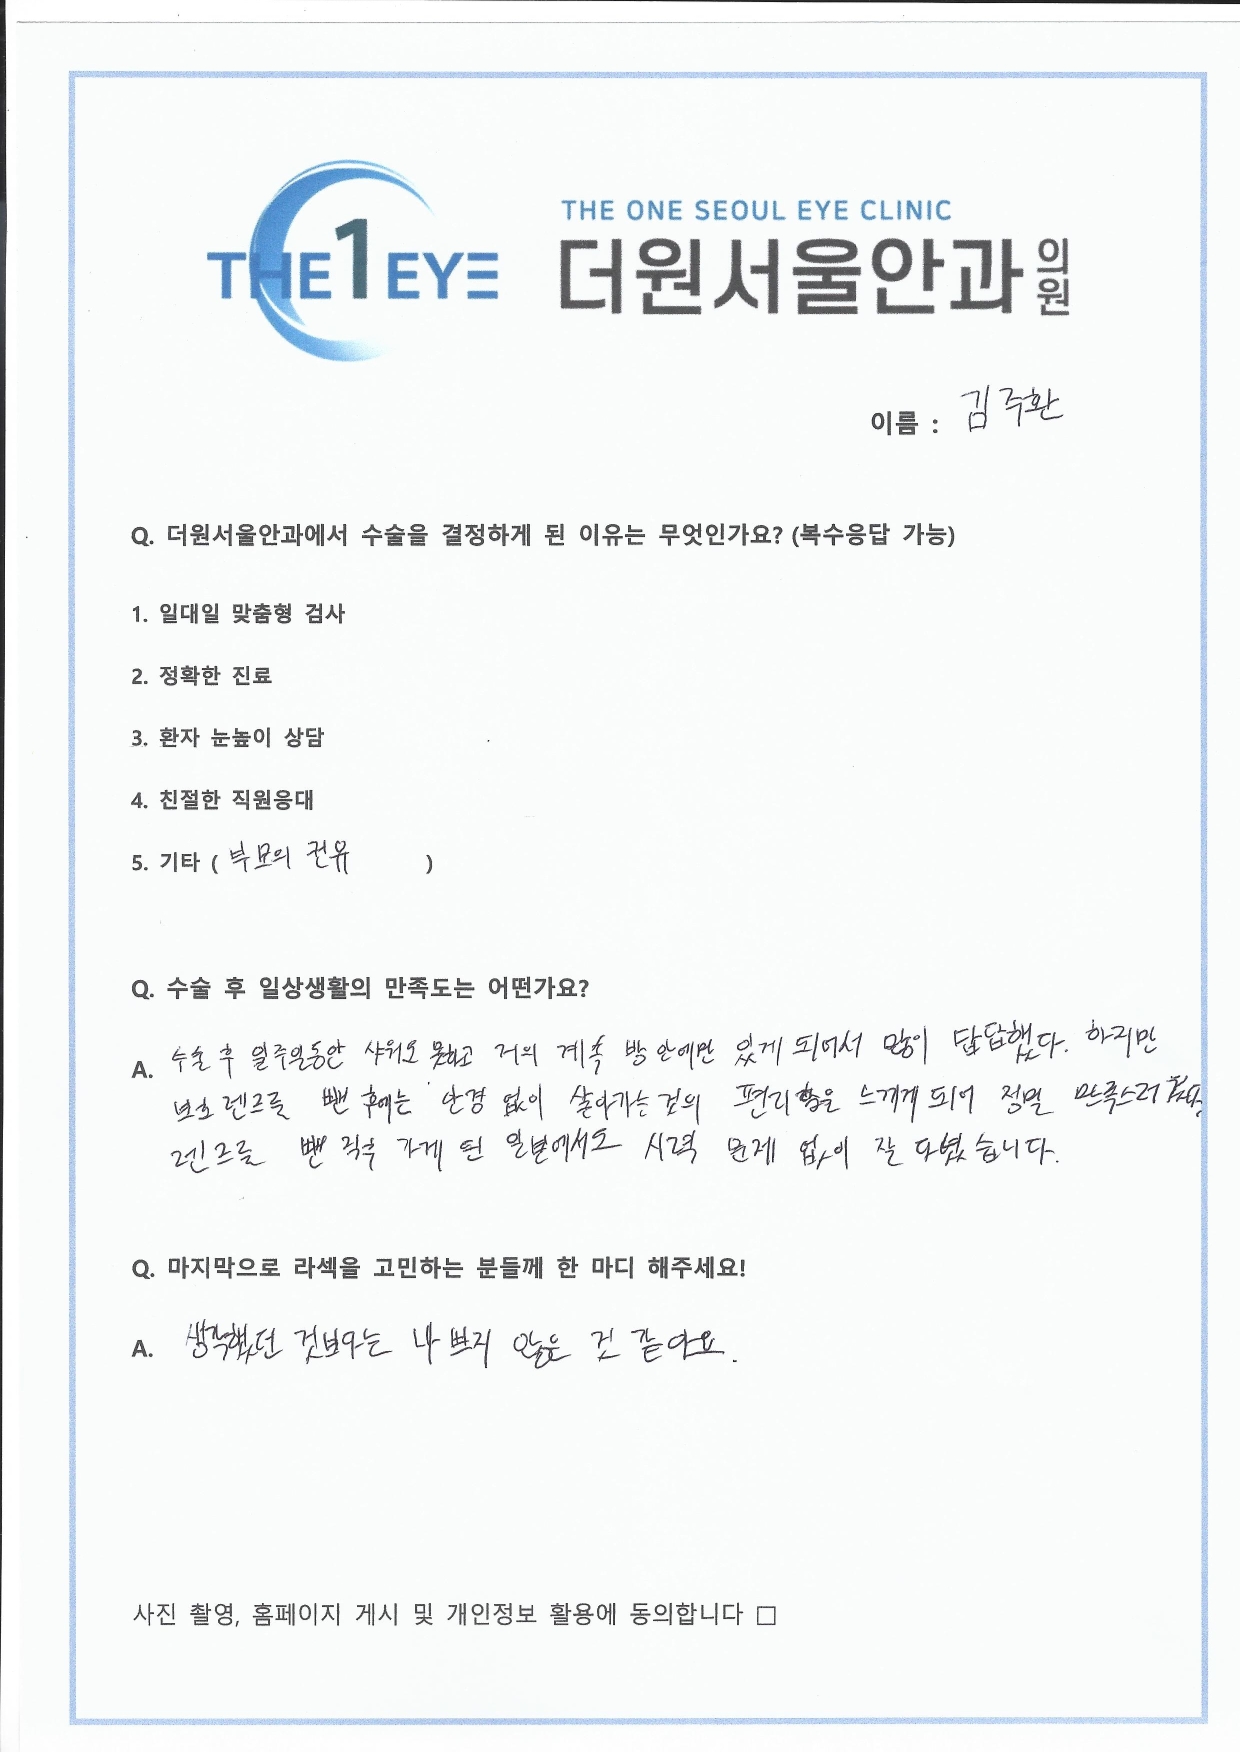 THE1EYE
THE ONE SEOUL EYE CLINIC
더원서울안과의원
이름 : 김주환
Q. 더원서울안과에서 수술을 결정하게 된 이유는 무엇인가요? (복수응답 가능)
1. 일대일 맞춤형 검사
2. 정확한 진료
3. 환자 눈높이 상담
4. 친절한 직원응대
5. 기타 ( 부모의 권유 )
Q. 수술 후 일상생활의 만족도는 어떤가요?
A. 수술 후 일주일동안 샤워도 못하고 거의 계속 방 안에만 있게 되어서 많이 답답했다. 하지만
보호렌즈를 뺀 후에는 안경 없이 살아가는 것의 편리함을 느끼게 되어 정말
렌즈를 뺀 직후 가게 된 일본에서도 시력 문제 없이 잘 다녔습니다.
Q. 마지막으로 라섹을 고민하는 분들께 한 마디 해주세요!
A. 생각했던 것보다는 나쁘지 않은 것 같아요.
사진 촬영, 홈페이지 게시 및 개인정보 활용에 동의합니다 □